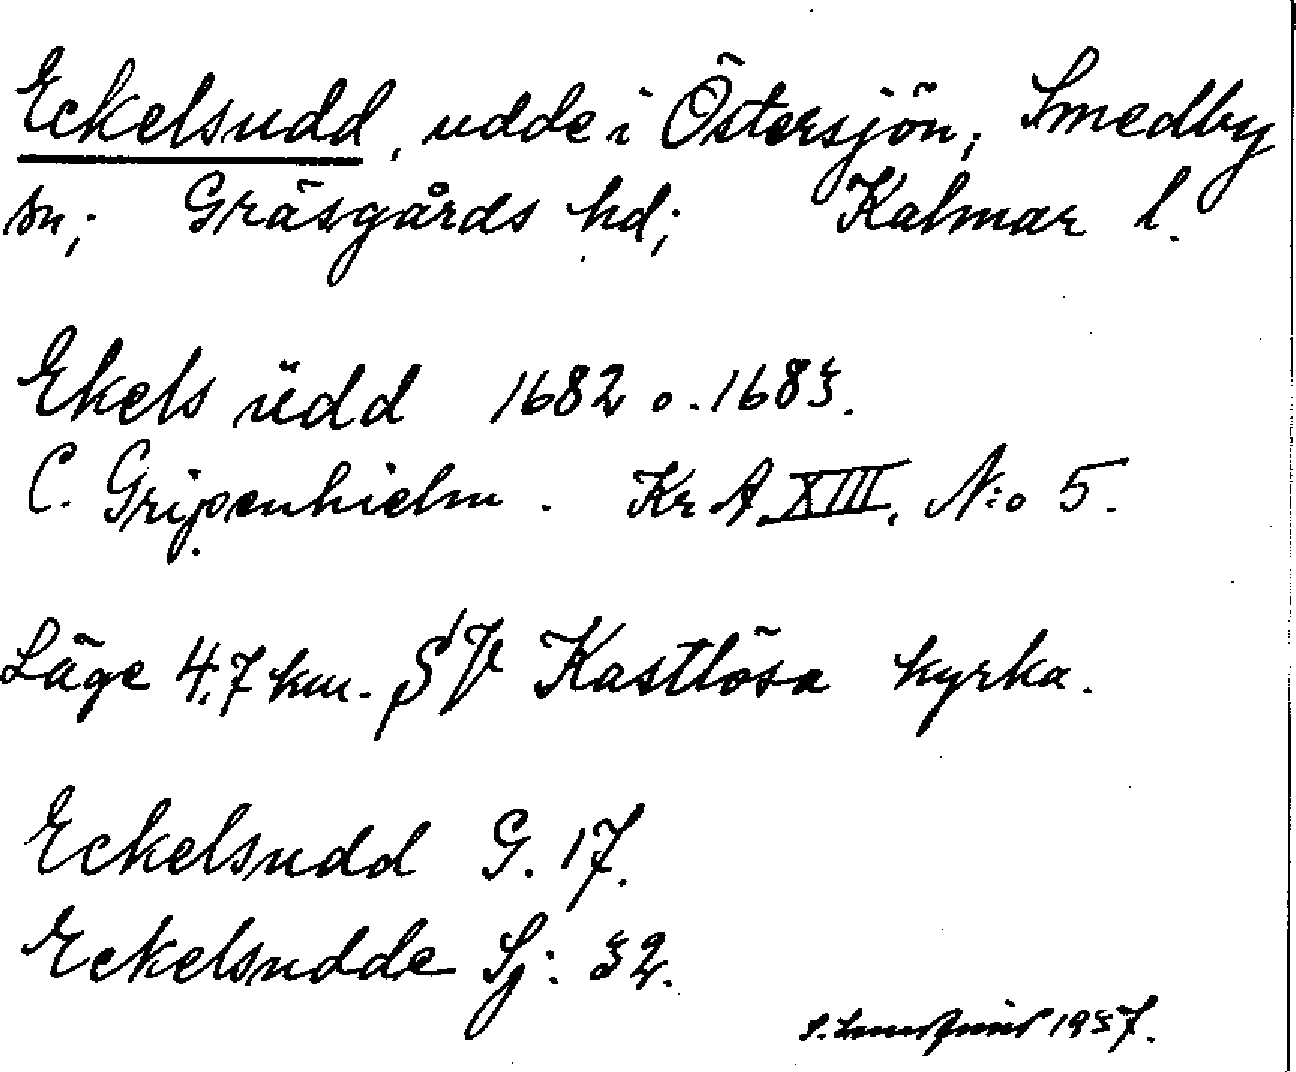 Eckelsudd, udde i Östersjön; Smedby
sn; Gräsgårds hd; Kalmar l.
Ekels ŭdd 1682 o. 1683.
C. Gripenhielm. Kr A. XIII. N:o 5.
Läge 4,7 km. SV Kastlösa kyrka.
Eckelsudd G. 17.
Eckelsudde Sj: 32.
S. 1937.